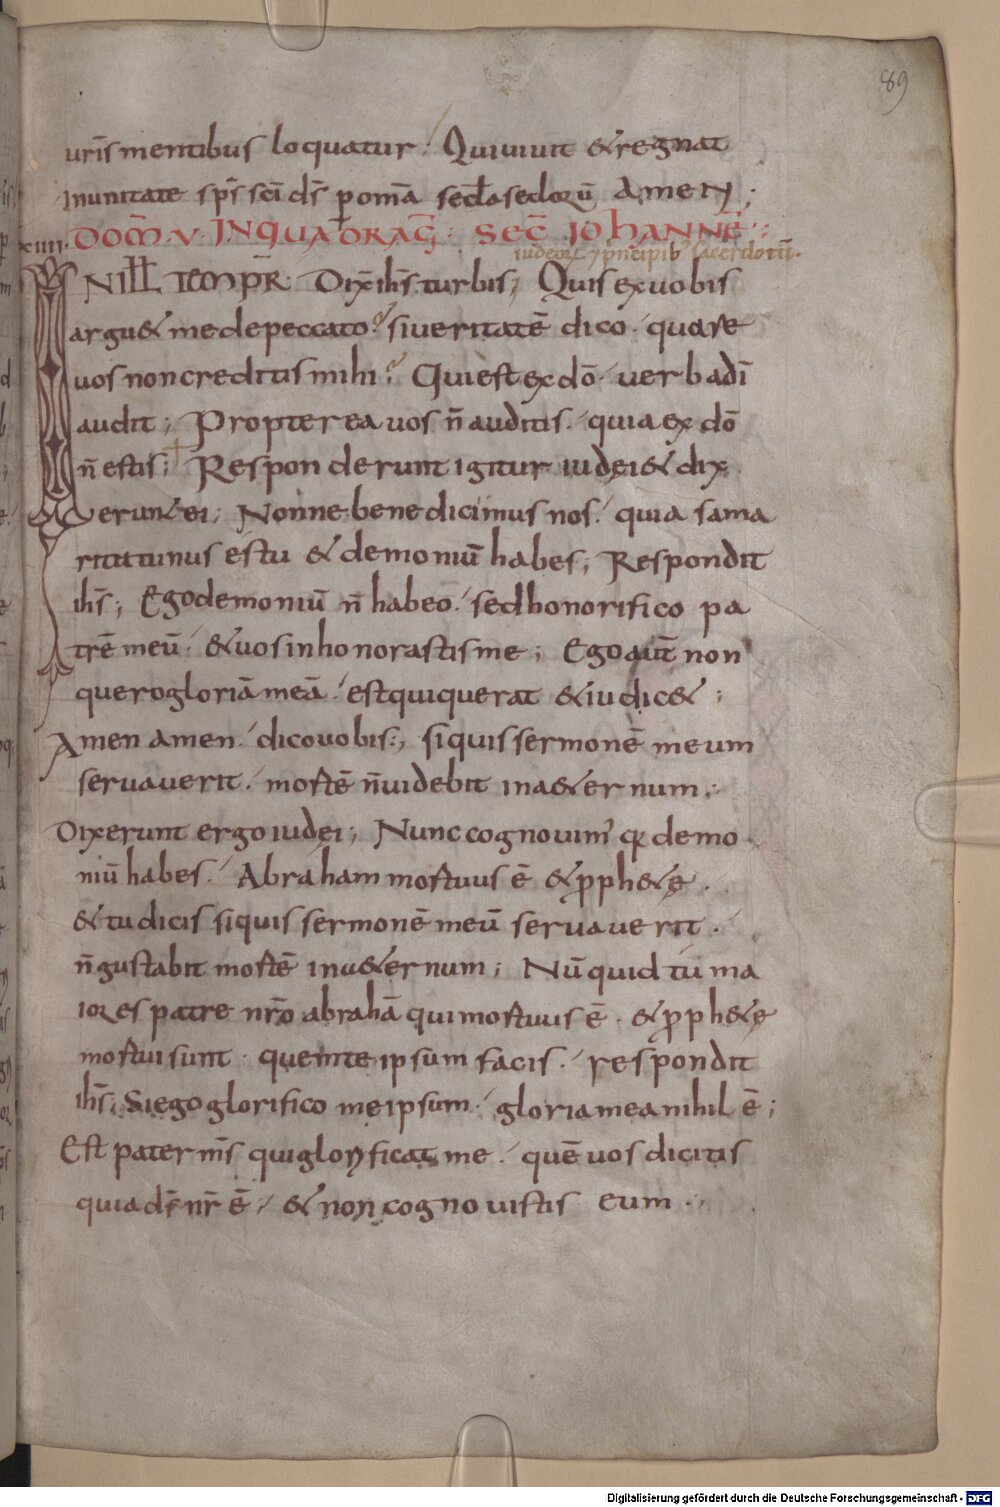 89
uris̄ mentibus loquatur. Qui uiuit & regnat
in unitate sp̄s sc̄i dī p̄ om̄a secl̄a seclorū amen;
xiiii. DOM̄. V. IN QUADRAG̃. SEC̃ IOHANNĒ;
iudeoꝝ ⁊ principib; sacerdotū.
IN ILL TEMPR̄. Dix̄ ih̄s turbis; Quis ex uobis
argu& me de peccato? si ueritatē dico. quare
uos non creditis mihi? Qui est ex dō. uerba dī
audit; Propterea uos n̄ auditis. quia ex dō
n̄ estis; Responderunt igitur iudęi & dix
erunt ei; Nonne bene dicimus nos. quia sama
ritanus es tu & demoniū habes; Respondit
ih̄s; Ego demoniū n̄ habeo. sed honorifico pa
trē meū. & uos inhonorastis me; Ego aut̄ non
quero gloriā meā. est qui querat & iudic&;
Amen amen. dico uobis; si quis sermonē meum
seruauerit. mortē n̄ uidebit in a&ernum;
Dixerunt ergo iudęi; Nunc cognouim' qꝛ demo
niū habes. Abraham mortuus ē & ꝓph&ę.
& tu dicis si quis sermonē meū seruauerit.
n̄ gustabit mortē in a&ernum; Nūquid tu ma
ior es patre nr̄o abrahā qui mortuus ē. & ꝓph&ę
mortui sunt. quem te ipsum facis. respondit
ih̄s; Si ego glorifico me ipsum. gloria mea nihil ē;
Est pater m̄s qui glorificat me. quē uos dicitis
quia dś nr̄ ē. & non cognouistis eum.
Digitalisierung gefördert durch die Deutsche Forschungsgemeinschaft - DFG